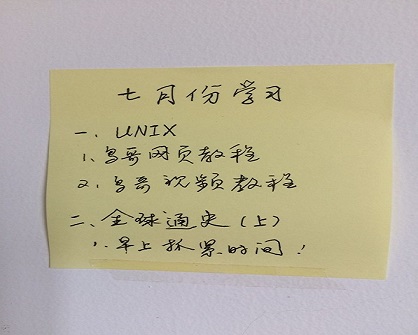 七月份学习
一、UNIX
1、鸟哥网页教程
2、鸟哥视频教程
二、全球通史(上)
1、早上抓紧时间!